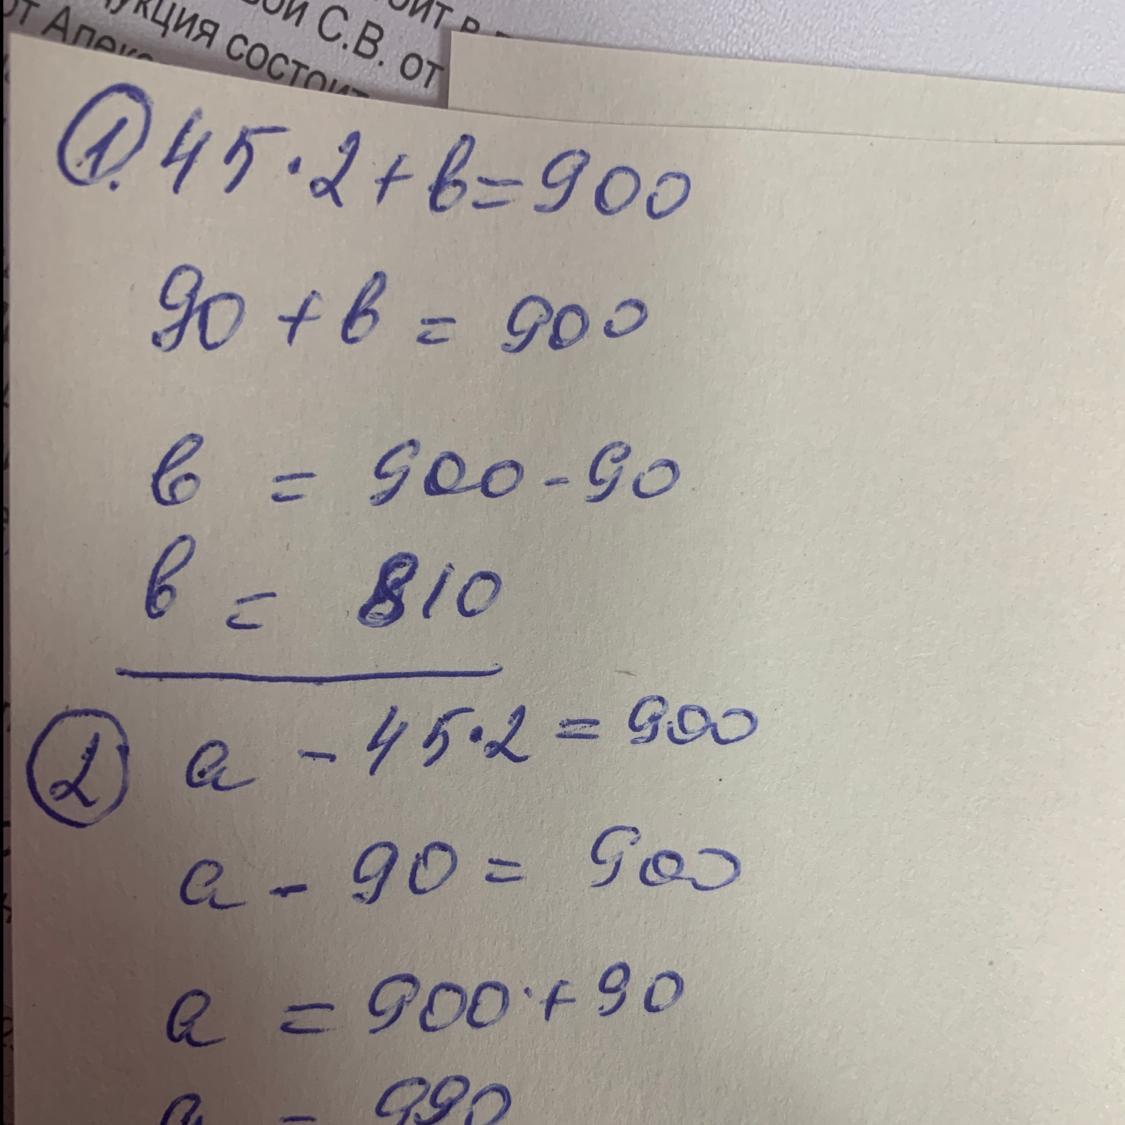 вой С.В. от
укция состоит
от Алекс
1. 45·2+в=900
90+в=900
в=900-90
в=810
2 а-45·2=900
а-90=900
а=900+90
а=990